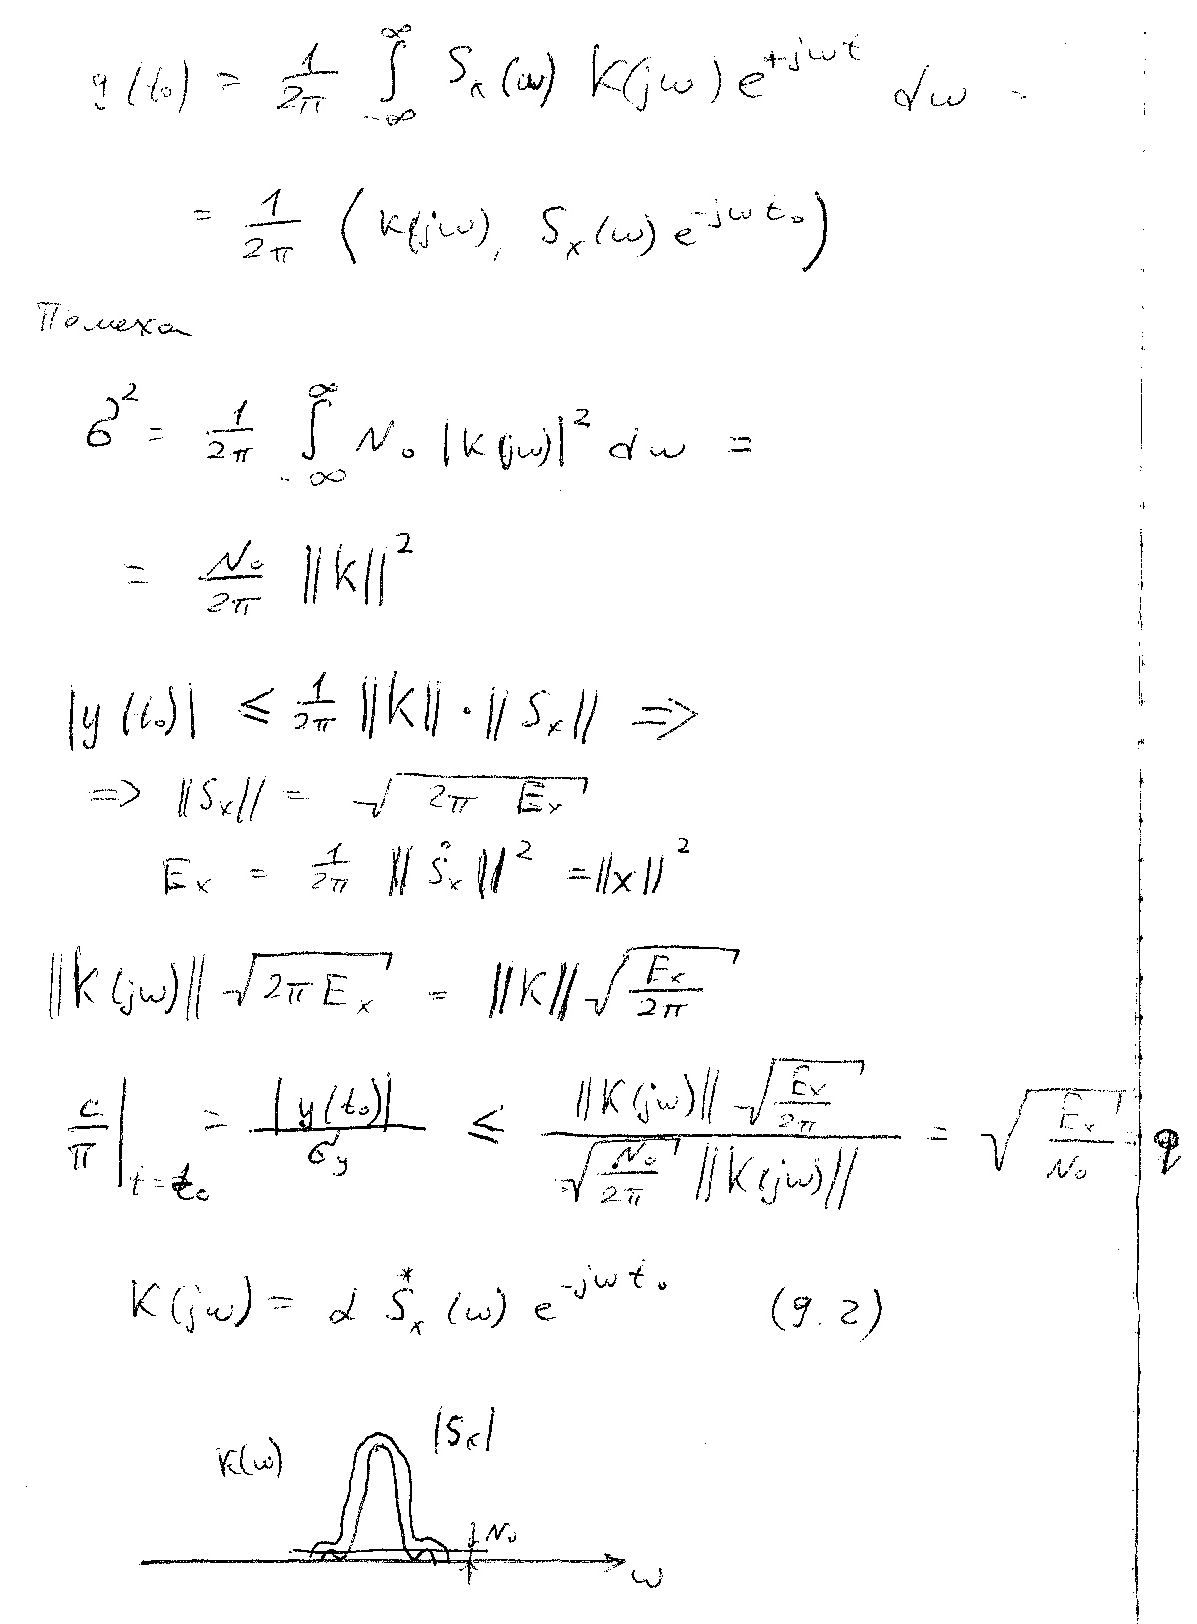 y(t₀) = 1/2π ∫_{-∞}^{∞} Sₓ(ω) K(jω) e^{+jωt} dω =
= 1/2π (K(jω), Sₓ(ω) e^{-jωt₀})
Помеха
σ² = 1/2π ∫_{-∞}^{∞} N₀ |K(jω)|² dω =
= N₀/2π ||K||²
|y(t₀)| ≤ 1/2π ||K|| · ||Sₓ|| =>
=> ||Sₓ|| = √(2π Eₓ)
Eₓ = 1/2π ||Ṡₓ||² = ||x||²
||K(jω)|| √(2π Eₓ) = ||K|| √(Eₓ/2π)
с/п |_{t=t₀} = |y(t₀)|/σ_y ≤ ||K(jω)|| √(Eₓ/2π) / √(N₀/2π) ||K(jω)|| = √(Eₓ/N₀) = q
K(jω) = α S*ₓ(ω) e^{-jωt₀} (9.2)
|Sₓ|
K(ω)
N₀
ω